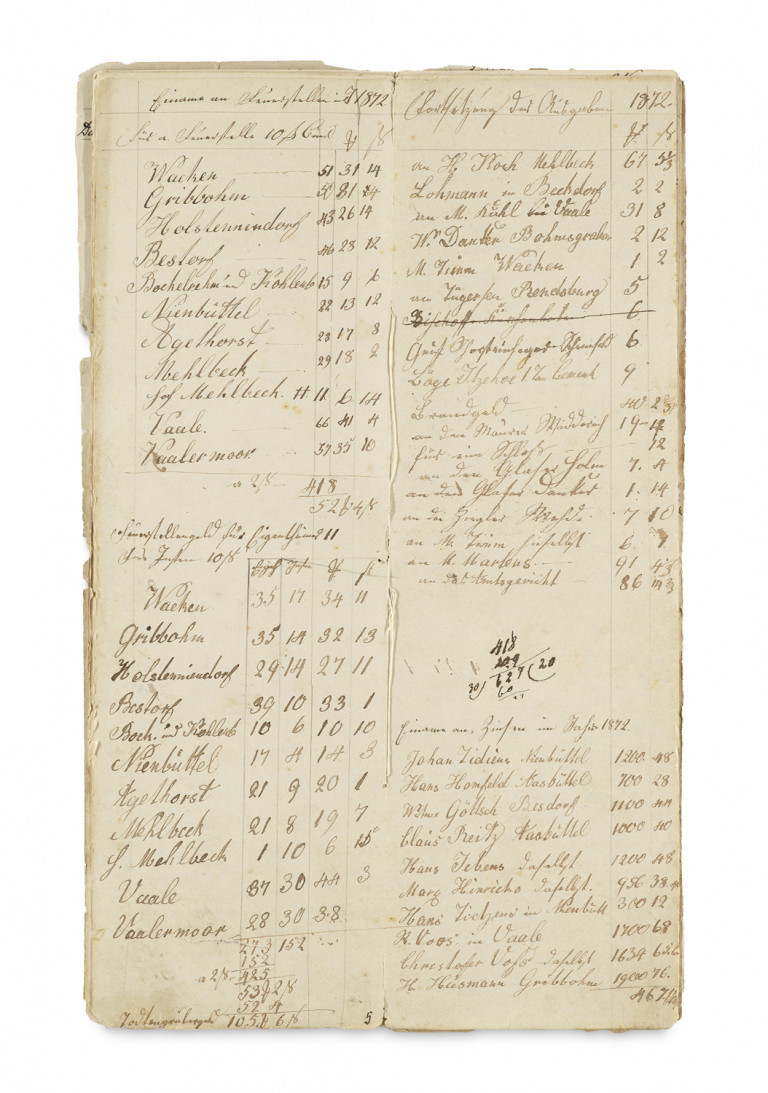 Einame an Feuerstellen in J 1872
Für a. Feuerstelle 10 ß
Wacken 51 31 14
Gribbohm 50 31 4
Holstennindorf 43 26 14
Bestorf 46 28 12
Bochelrehm und Köhlenb 15 9 6
Nienbüttel 22 13 12
Agethorst 28 17 8
Mehlbeck 29 18 2
hof Mehlbeck. 11 6 14
Vaale. 66 41 4
Vaalermoor 57 35 10
a 2/ß 418
52 4/ß
Feuerstellengeld für Eigenthümer 11
für Insten 10/ß
Wacken 35 17 34 11
Gribbohm 35 14 32 13
Holstenniendorf 29 14 27 11
Bestorf 39 10 33 1
Boch. und Köhlenb 10 6 10 10
Nienbüttel 17 4 14 3
Agethorst 21 9 20 1
Mehlbeck 21 8 19 7
h. Mehlbeck 1 10 6 15
Vaale 37 30 44 3
Vaalermoor 28 30 38
273 152
152
a 2/ß 425
53 2/ß
52 4
Todtengräbergeld 105 6/ß
5
Fortsetzung der Ausgaben 1872.
an H. Koch Mehlbeck 67
Lohmann in Beckdorf 2 2
an M. Kühl bei Vaale 31 8
Wr Danker Bohmsgraben 2 12
M. Timm Wacken 1 2
an Rendsburg 5
Bischoff 6
6
Itzehoe 1 Ton Cement 9
Brandgeld 40
an den Maurer 19
für ein Schloß 12
an den Glaser Holm 7. 4
an den Glaser Danker 1. 14
an die Ziegler 7 10
an M. Timm daselbst 6
an M. Martens 91
an das Amtsgericht 86
418
209
30) 627 (20
60
Einame an Zinsen im Jahr 1872.
Johan Tidiens Nienbüttel 1200 48
Hans Homfeld Aasbüttel 700 28
Witwe Göttsch Besdorf 1100 44
Claus Reitz Aasbüttel 1000 40
Hans Jebens daselbst 1200 48
Marx Hinrichs daselbst. 956 38
Hans Tietjens in Nienbütt 300 12
Voos in Vaale 1700 68
Christofer Voss daselbst 1634
H. Hüsmann Gribbohm 1900 76.
467